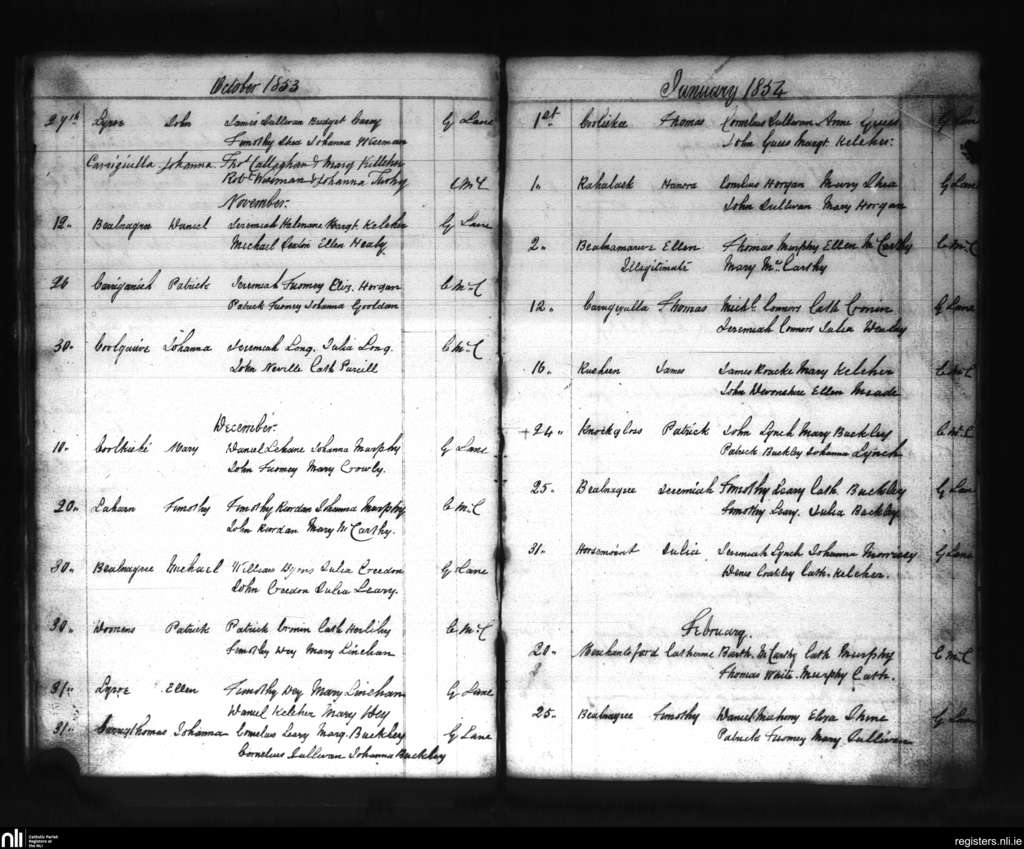 October 1853
27th Lyroe John James Sullivan Budget Casey G Lane
Timothy Shea Johanna Wiseman
Carriguilla Johanna Thos Callaghan & Marg Kelleher
Robt Wiseman & Johanna Twohy C McC
November.
12 Bealnagree Daniel Jeremiah Helenane Margt Keleher G Lane
Michael Ellen Healy
26 Patrick Jeremiah Twomey Eliz. Horgan C McC
Patrick Twomey Johanna Gooldan
30 Coolquive Johanna Jeremiah Long. Julia Long. C McC
John Neville Cath Purcill
December.
10 Mary Daniel Lehane Johanna Murphy G Lane
John Twomey Mary Crowly.
20 Laharn Timothy Timothy Riordan Johanna Murphy C McC
John Riordan Mary McCarthy.
30 Bealnagree Michael William Julia Creedon G Lane
John Creedon Julia Leary.
30 Doonens Patrick Patrick Cronin Cath Herlihy C McC
Timothy Dey Mary Linehan
31 Lyroe Ellen Timothy Dey Mary Linehan G Lane
Daniel Keleher Mary Dey
31 Johanna Cornelius Leary Marg. Buckley G Lane
Cornelius Sullivan Johanna Buckley
January 1854
1st Thomas Cornelius Sullivan Anne Guees G Lane
John Guees Margt Keleher.
1 Rahaleek Honora Cornelius Horgan Mary Shea G Lane
John Sullivan Mary Horgan
2 Ellen Thomas Murphy Ellen McCarthy C McC
Illegitimate Mary McCarthy
12 Thomas Michl Connors Cath Cronin G Lane
Jeremiah Connors Julia
16 Rusheen James James Roache Mary Keleher C McC
John Devonshire Ellen Meade
+24 Knockgloss Patrick John Lynch Mary Buckley C McC
Patrick Buckley Johanna Lynch
25 Bealnagree Jeremiah Timothy Leary Cath Buckley G Lane
Timothy Leary. Julia Buckley
31 Horsemount Julia Jeremiah Lynch Johanna Morrissy G Lane
Denis Coakley Cath. Keleher.
February.
20 Catherine Barth. McCarthy Cath Murphy C McC
Thomas Waite. Murphy Cath.
25 Bealnagree Timothy Daniel Mahony Eliza Shine G Lane
Patrick Twomey Mary Sullivan
nli
Catholic Parish
Registers at
the NLI
registers.nli.ie